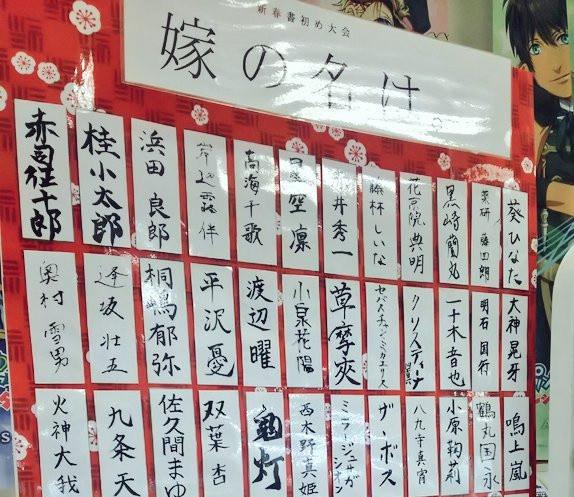 新春書初め大会
嫁の名は。
葵ひなた
薬研 藤四郎
黒崎蘭丸
花京院典明
藤林しいな
井秀一
星空凛
高海千歌
岸辺露伴
浜田良郎
桂小太郎
赤司征十郎
大神晃牙
明石国行
一十木音也
クリスティーナ
セバスチャンミカエリス
草摩夾
小泉花陽
渡辺曜
平沢憂
桐嶋郁弥
逢坂壮五
奥村雪男
鳴上嵐
鶴丸国永
小原鞠莉
八九寺真宵
ザ・ボス
西木野真姫
鬼灯
双葉杏
佐久間まゆ
九条天
火神大我